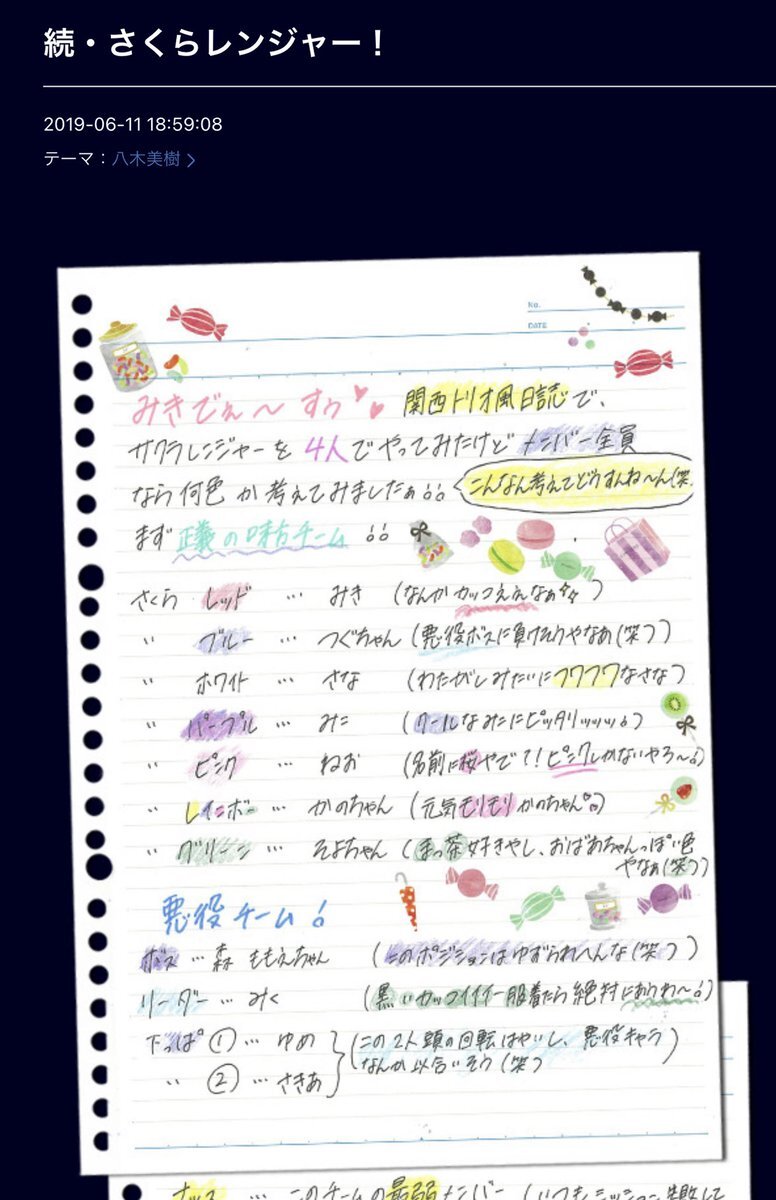 続・さくらレンジャー！
2019-06-11 18:59:08
テーマ：八木美樹 >
No.
DATE
みきでぇ〜すぅ 関西トリオ風日誌で、
サクラレンジャーを4人でやってみたけどメンバー全員
なら何色か考えてみましたぁ!!
こんなん考えてどうすんね〜ん(笑
まず正義の味方チーム!!
さくらレッド … みき (なんかカッコええなぁ)
〃 ブルー … つぐちゃん (悪役ボスに負けたりやなぁ(笑))
〃 ホワイト … さな (わたがしみたいにフワフワなさな)
〃 パープル … みこ (クールなみこにピッタリッッッ!)
〃 ピンク … ねお (名前に桜やで?!ピンクしかないやろ〜!)
〃 レインボー … かのちゃん (元気モリモリかのちゃん!)
〃 グリーン … そよちゃん (まっ茶好きやし、おばあちゃんっぽい色
やなぁ(笑))
悪役チーム!
ボス … 森ももえちゃん (このポジションはゆずられへんな(笑))
リーダー … みく (黒いカッコイイイー服着たら絶対にあうわ〜!)
下っぱ① … ゆめ
〃 ② … さきあ
(この2人頭の回転はやいし、悪役キャラ
なんか似合いそう(笑)
ナッ … このチームの最弱メンバー (いつもミッション失敗して